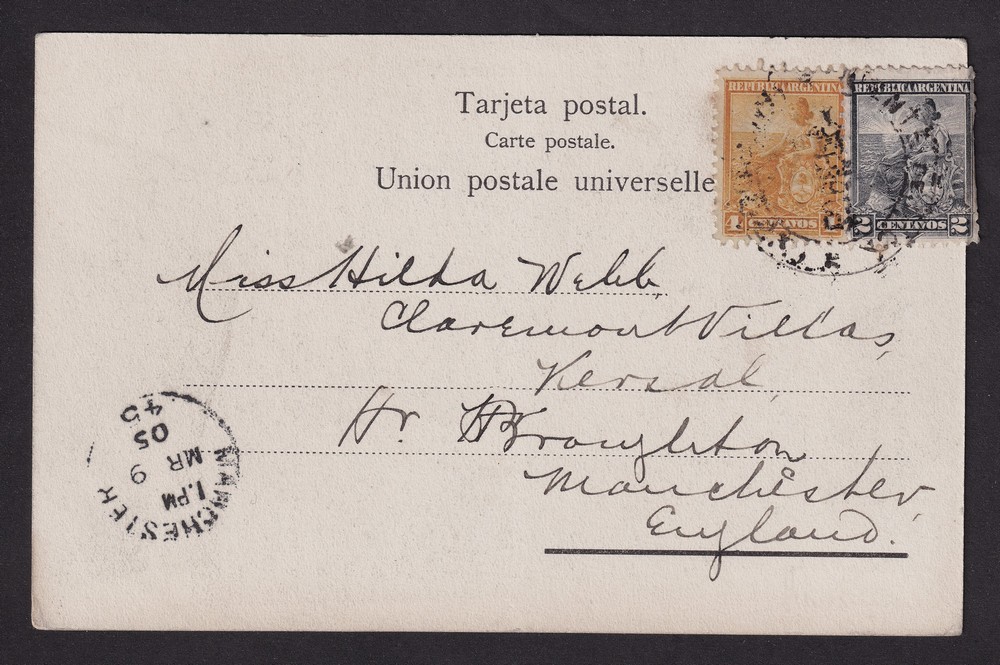 Tarjeta postal.
Carte postale.
Union postale universelle
REPUBLICA ARGENTINA
4 CENTAVOS
REPUBLICA ARGENTINA
2 CENTAVOS 2
Miss Hilda Webb,
Claremont Villas,
Kersal,
Hr. Broughton
Manchester,
England.
MANCHESTER
1.PM
MR 9
05
45